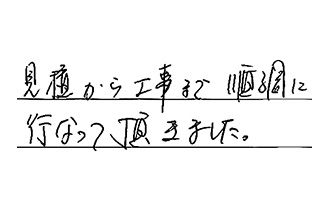 見積から工事まで順調に
行なって頂きました。